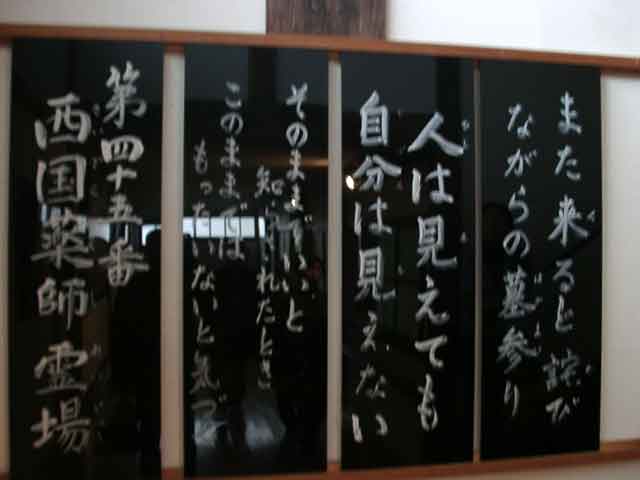 また来るど詫び
ながらの墓参り
人は見えても
自分は見えない
そのままでいいと
知らされたとき
このままでは
もったいないと気づく
第四十五番
西国薬師霊場